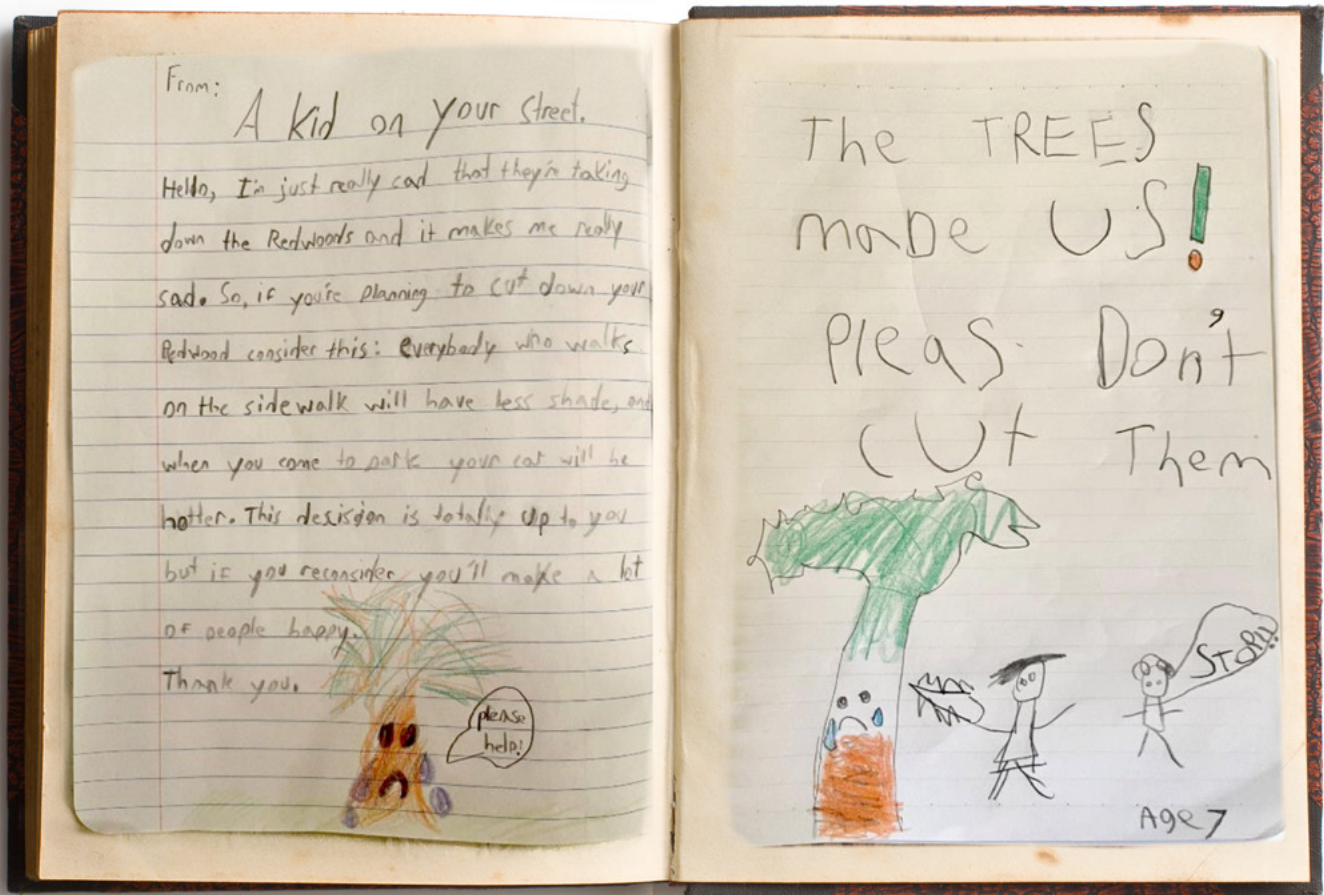 From:
A kid on your street.
Hello, I'm just really sad that they're taking
down the Redwoods and it makes me really
sad. So, if you're planning to cut down your
Redwood consider this: everybody who walks
on the sidewalk will have less shade, and
when you come to park your car will be
hotter. This desision is totally up to you
but if you reconsider you'll make a lot
of people happy.
Thank you.
please
help!
The TREES
maDe US!
Pleas Don't
CUt Them
STOP!!!
Age 7